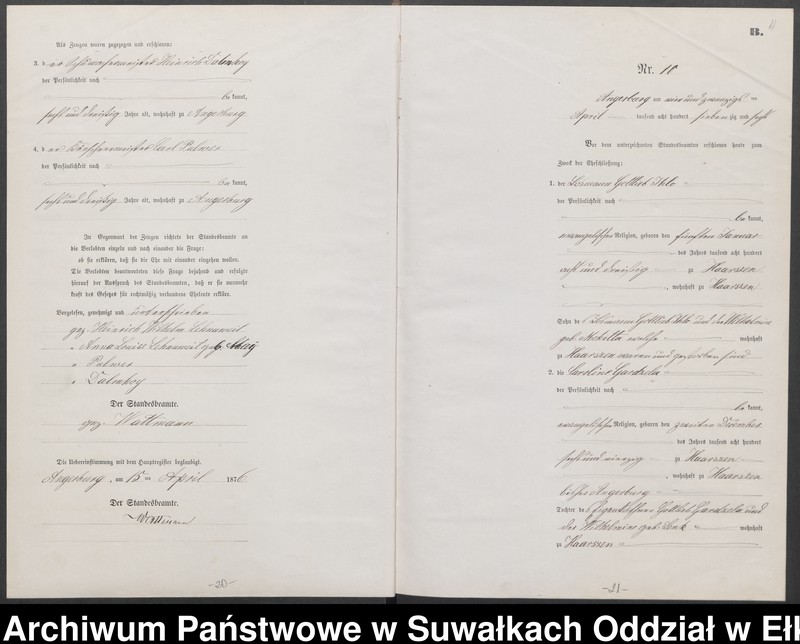 Als Zeugen waren zugezogen und erschienen:
3. der Heinrich
der Persönlichkeit nach
be kannt,
sechs und dreißig Jahre alt, wohnhaft zu Angerburg
4. der Carl Palmer
der Persönlichkeit nach
be kannt,
sechs und dreißig Jahre alt, wohnhaft zu Angerburg
In Gegenwart der Zeugen richtete der Standesbeamte an
die Verlobten einzeln und nach einander die Frage:
ob sie erklären, daß sie die Ehe mit einander eingehen wollen.
Die Verlobten beantworteten diese Frage bejahend und erfolgte
hierauf der Ausspruch des Standesbeamten, daß er sie nunmehr
kraft des Gesetzes für rechtmäßig verbundene Eheleute erkläre.
Vorgelesen, genehmigt und unterschrieben
gez. Heinrich Wilhelm
" Anna Louise geb.
" Palmer
"
Der Standesbeamte.
gez. Wattmann
Die Uebereinstimmung mit dem Hauptregister beglaubigt.
Angerburg, am 15ten April 1876
Der Standesbeamte.
Wattmann
-20-
B.
Nr. 10
Angerburg am vier und zwanzigst ten
April tausend acht hundert sieben zig und sechs
Vor dem unterzeichneten Standesbeamten erschienen heute zum
Zweck der Eheschließung:
1. der Gottlieb Ihlo
der Persönlichkeit nach
be kannt,
evangelischer Religion, geboren den fünften Januar
des Jahres tausend acht hundert
acht und dreißig zu Haarszen
, wohnhaft zu Haarszen
Sohn des Gottlieb Ihlo und der Wilhelmine
geb. welche wohnhaft
zu Haarszen waren und gestorben sind
2. die Caroline Gardzela
der Persönlichkeit nach
be kannt,
evangelischer Religion, geboren den zweiten Dezember
des Jahres tausend acht hundert
sechs und vierzig zu Haarszen
, wohnhaft zu Haarszen
Angerburg
Tochter des Gottlieb Gardzela und
der Wilhelmine geb. wohnhaft
zu Haarszen
-21-
Archiwum Państwowe w Suwałkach Oddział w Eł